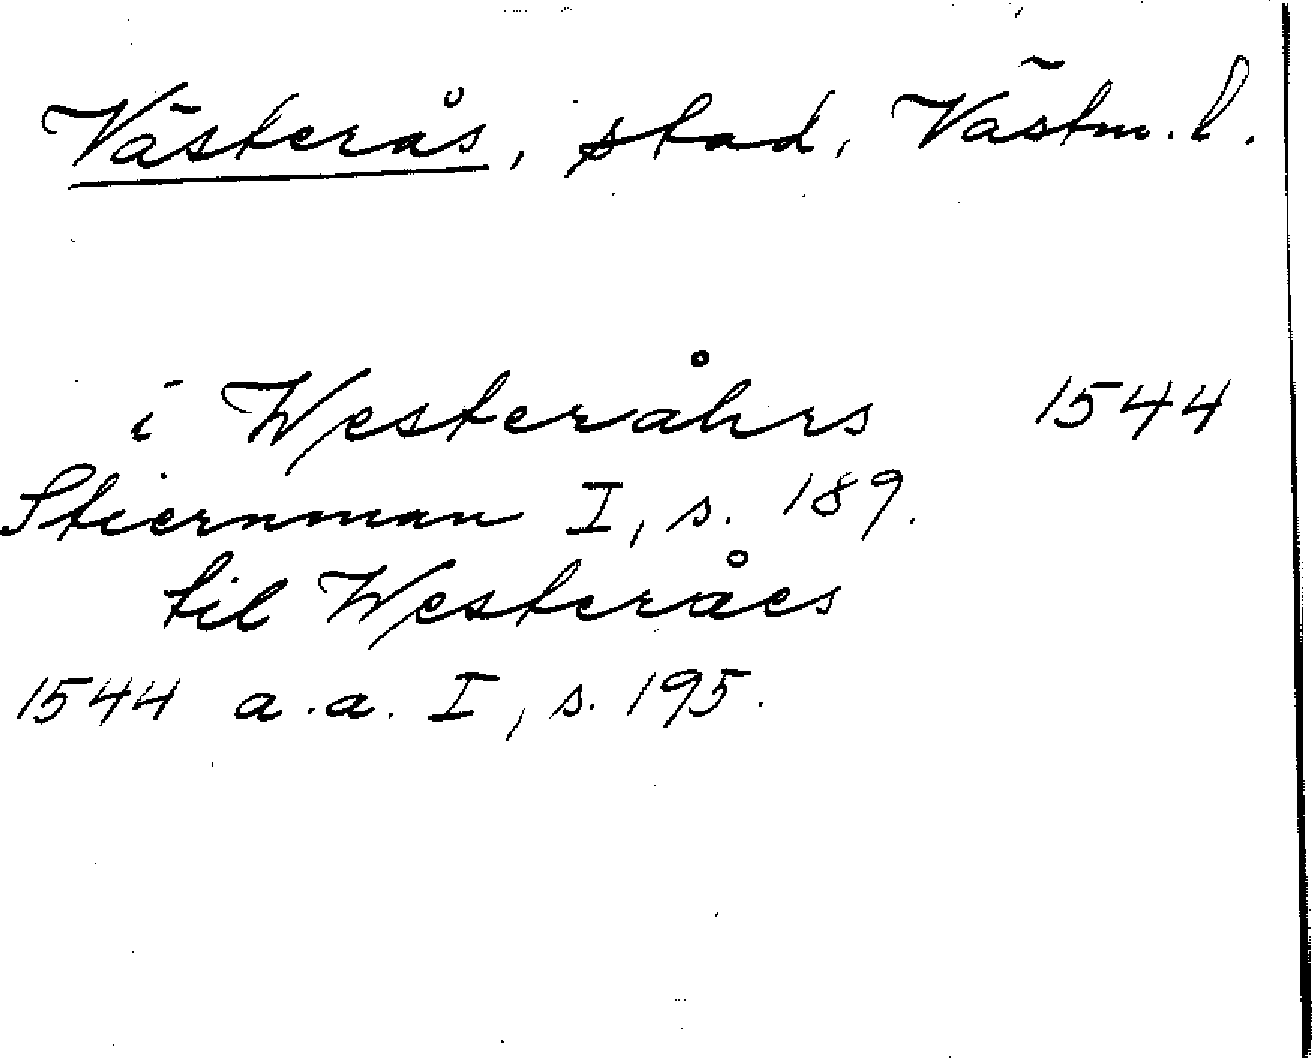 Västerås, stad, Västm. l.
i Westeråhrs 1544
Stiernman I, s. 189.
til Westeråes
1544 a.a. I, s. 195.